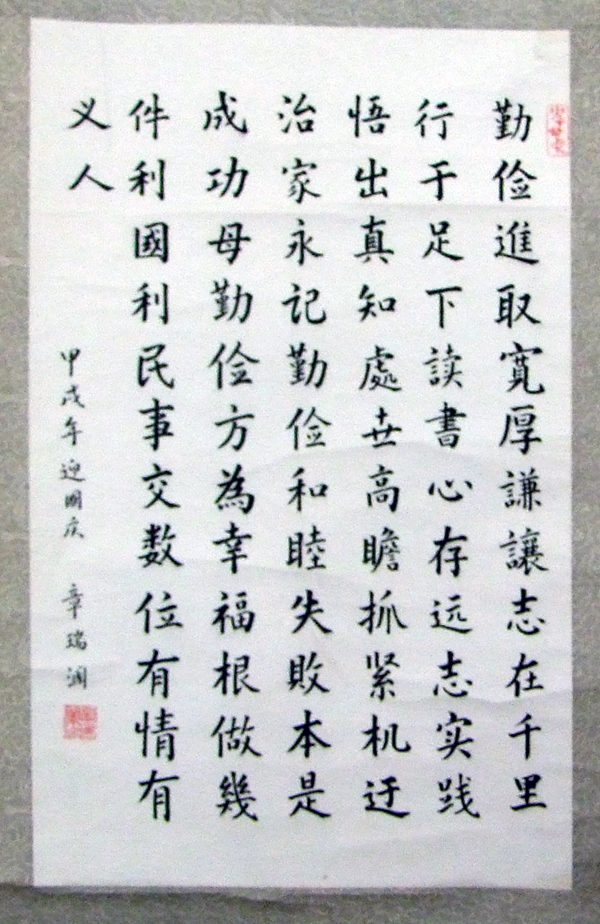 勤俭進取寬厚謙讓志在千里
行于足下读書心存远志实践
悟出真知處世高瞻抓紧机迂
治家永记勤俭和睦失敗本是
成功母勤俭方為幸福根做幾
件利國利民事交数位有情有
义人
甲戌年迎國庆 章瑞